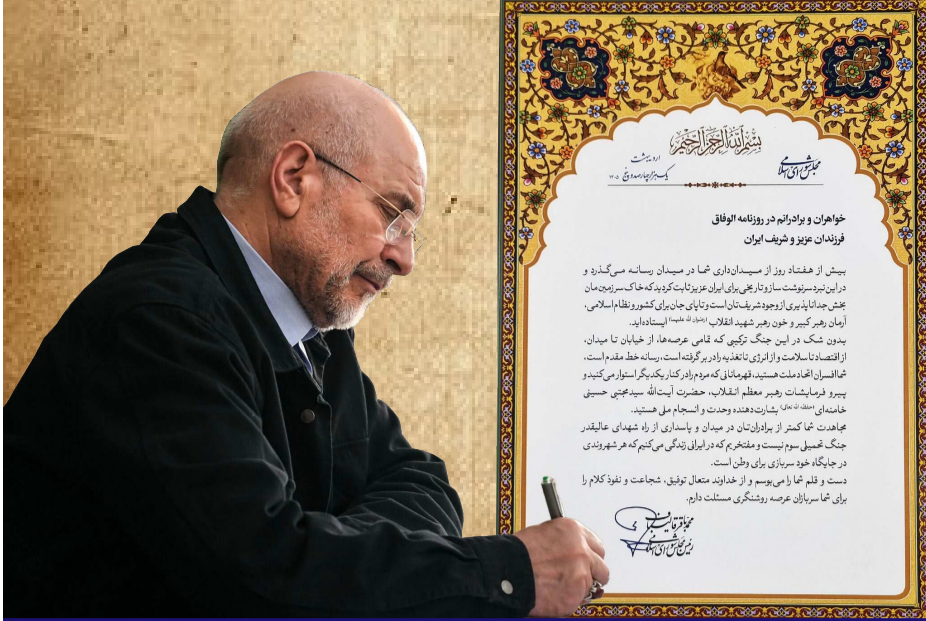 بسم الله الرحمن الرحیم
مجلس شورای اسلامی
اردیبهشت
یک هزار و چهارصد و پنج
۱۴۰۵
خواهران و برادرانم در روزنامه الوفاق
فرزندان عزیز و شریف ایران
بیش از هفتاد روز از میدان‌داری شما در میدان رسانه می‌گذرد و
در این نبرد سرنوشت ساز و تاریخی برای ایران عزیز ثابت کردید که خاک سرزمین مان
بخش جدا ناپذیری از وجود شریف تان است و تا پای جان برای کشور و نظام اسلامی،
آرمان رهبر کبیر و خون رهبر شهید انقلاب (رضوان الله علیهما) ایستاده‌اید.
بدون شک در این جنگ ترکیبی که تمامی عرصه‌ها، از خیابان تا میدان،
از اقتصاد تا سلامت و از انرژی تا تغذیه را در بر گرفته است، رسانه خط مقدم است،
شما افسران اتحاد ملت هستید، قهرمانانی که مردم را در کنار یکدیگر استوار می‌کنید و
پیرو فرمایشات رهبر معظم انقلاب، حضرت آیت‌الله سید مجتبی حسینی
خامنه‌ای (حفظه الله تعالی) بشارت‌دهنده وحدت و انسجام ملی هستید.
مجاهدت شما کمتر از برادران‌تان در میدان و پاسداری از راه شهدای عالیقدر
جنگ تحمیلی سوم نیست و مفتخریم که در ایرانی زندگی می‌کنیم که هر شهروندی
در جایگاه خود سربازی برای وطن است.
دست و قلم شما را می‌بوسم و از خداوند متعال توفیق، شجاعت و نفوذ کلام را
برای شما سربازان عرصه روشنگری مسئلت دارم.
محمدباقر قالیباف
رئیس مجلس شورای اسلامی